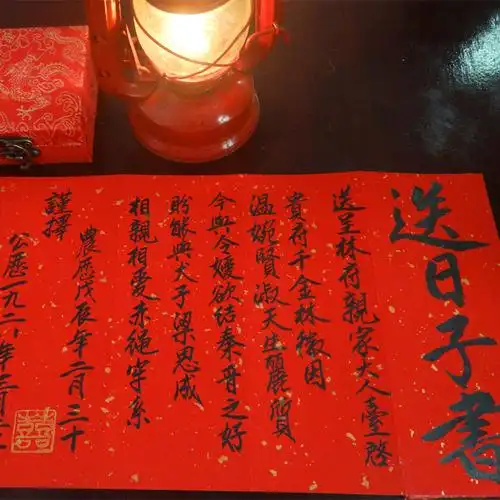 送日子書
送呈林府親家大人臺啓
貴府千金林徽因
温婉賢淑天生麗質
今與令嫒欲结秦晉之好
盼能與犬子梁思成
相親相愛赤绳牢系
謹擇
農歷戊辰年二月三十
公歷一九二年三月二
囍